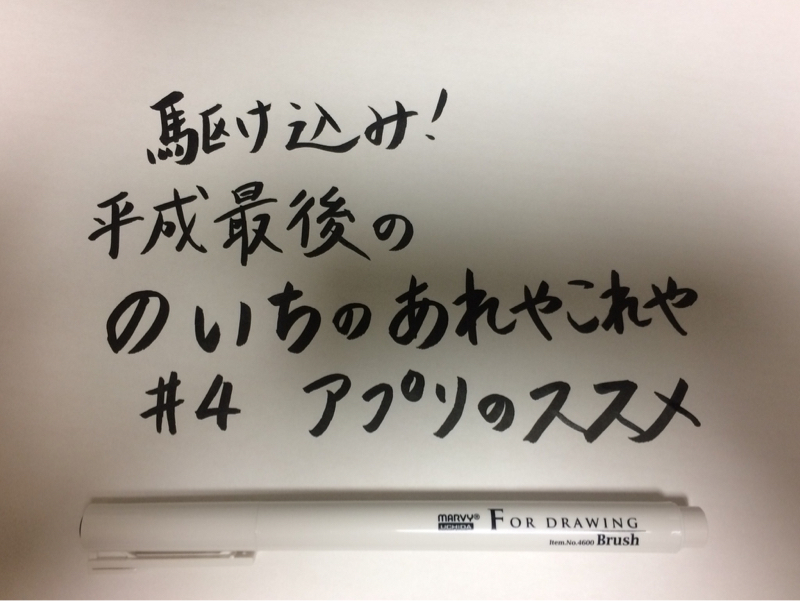 駆け込み!
平成最後の
のいちのあれやこれや
#4 アプリのススメ
MARVY® UCHIDA FOR DRAWING
Item.No.4600 Brush